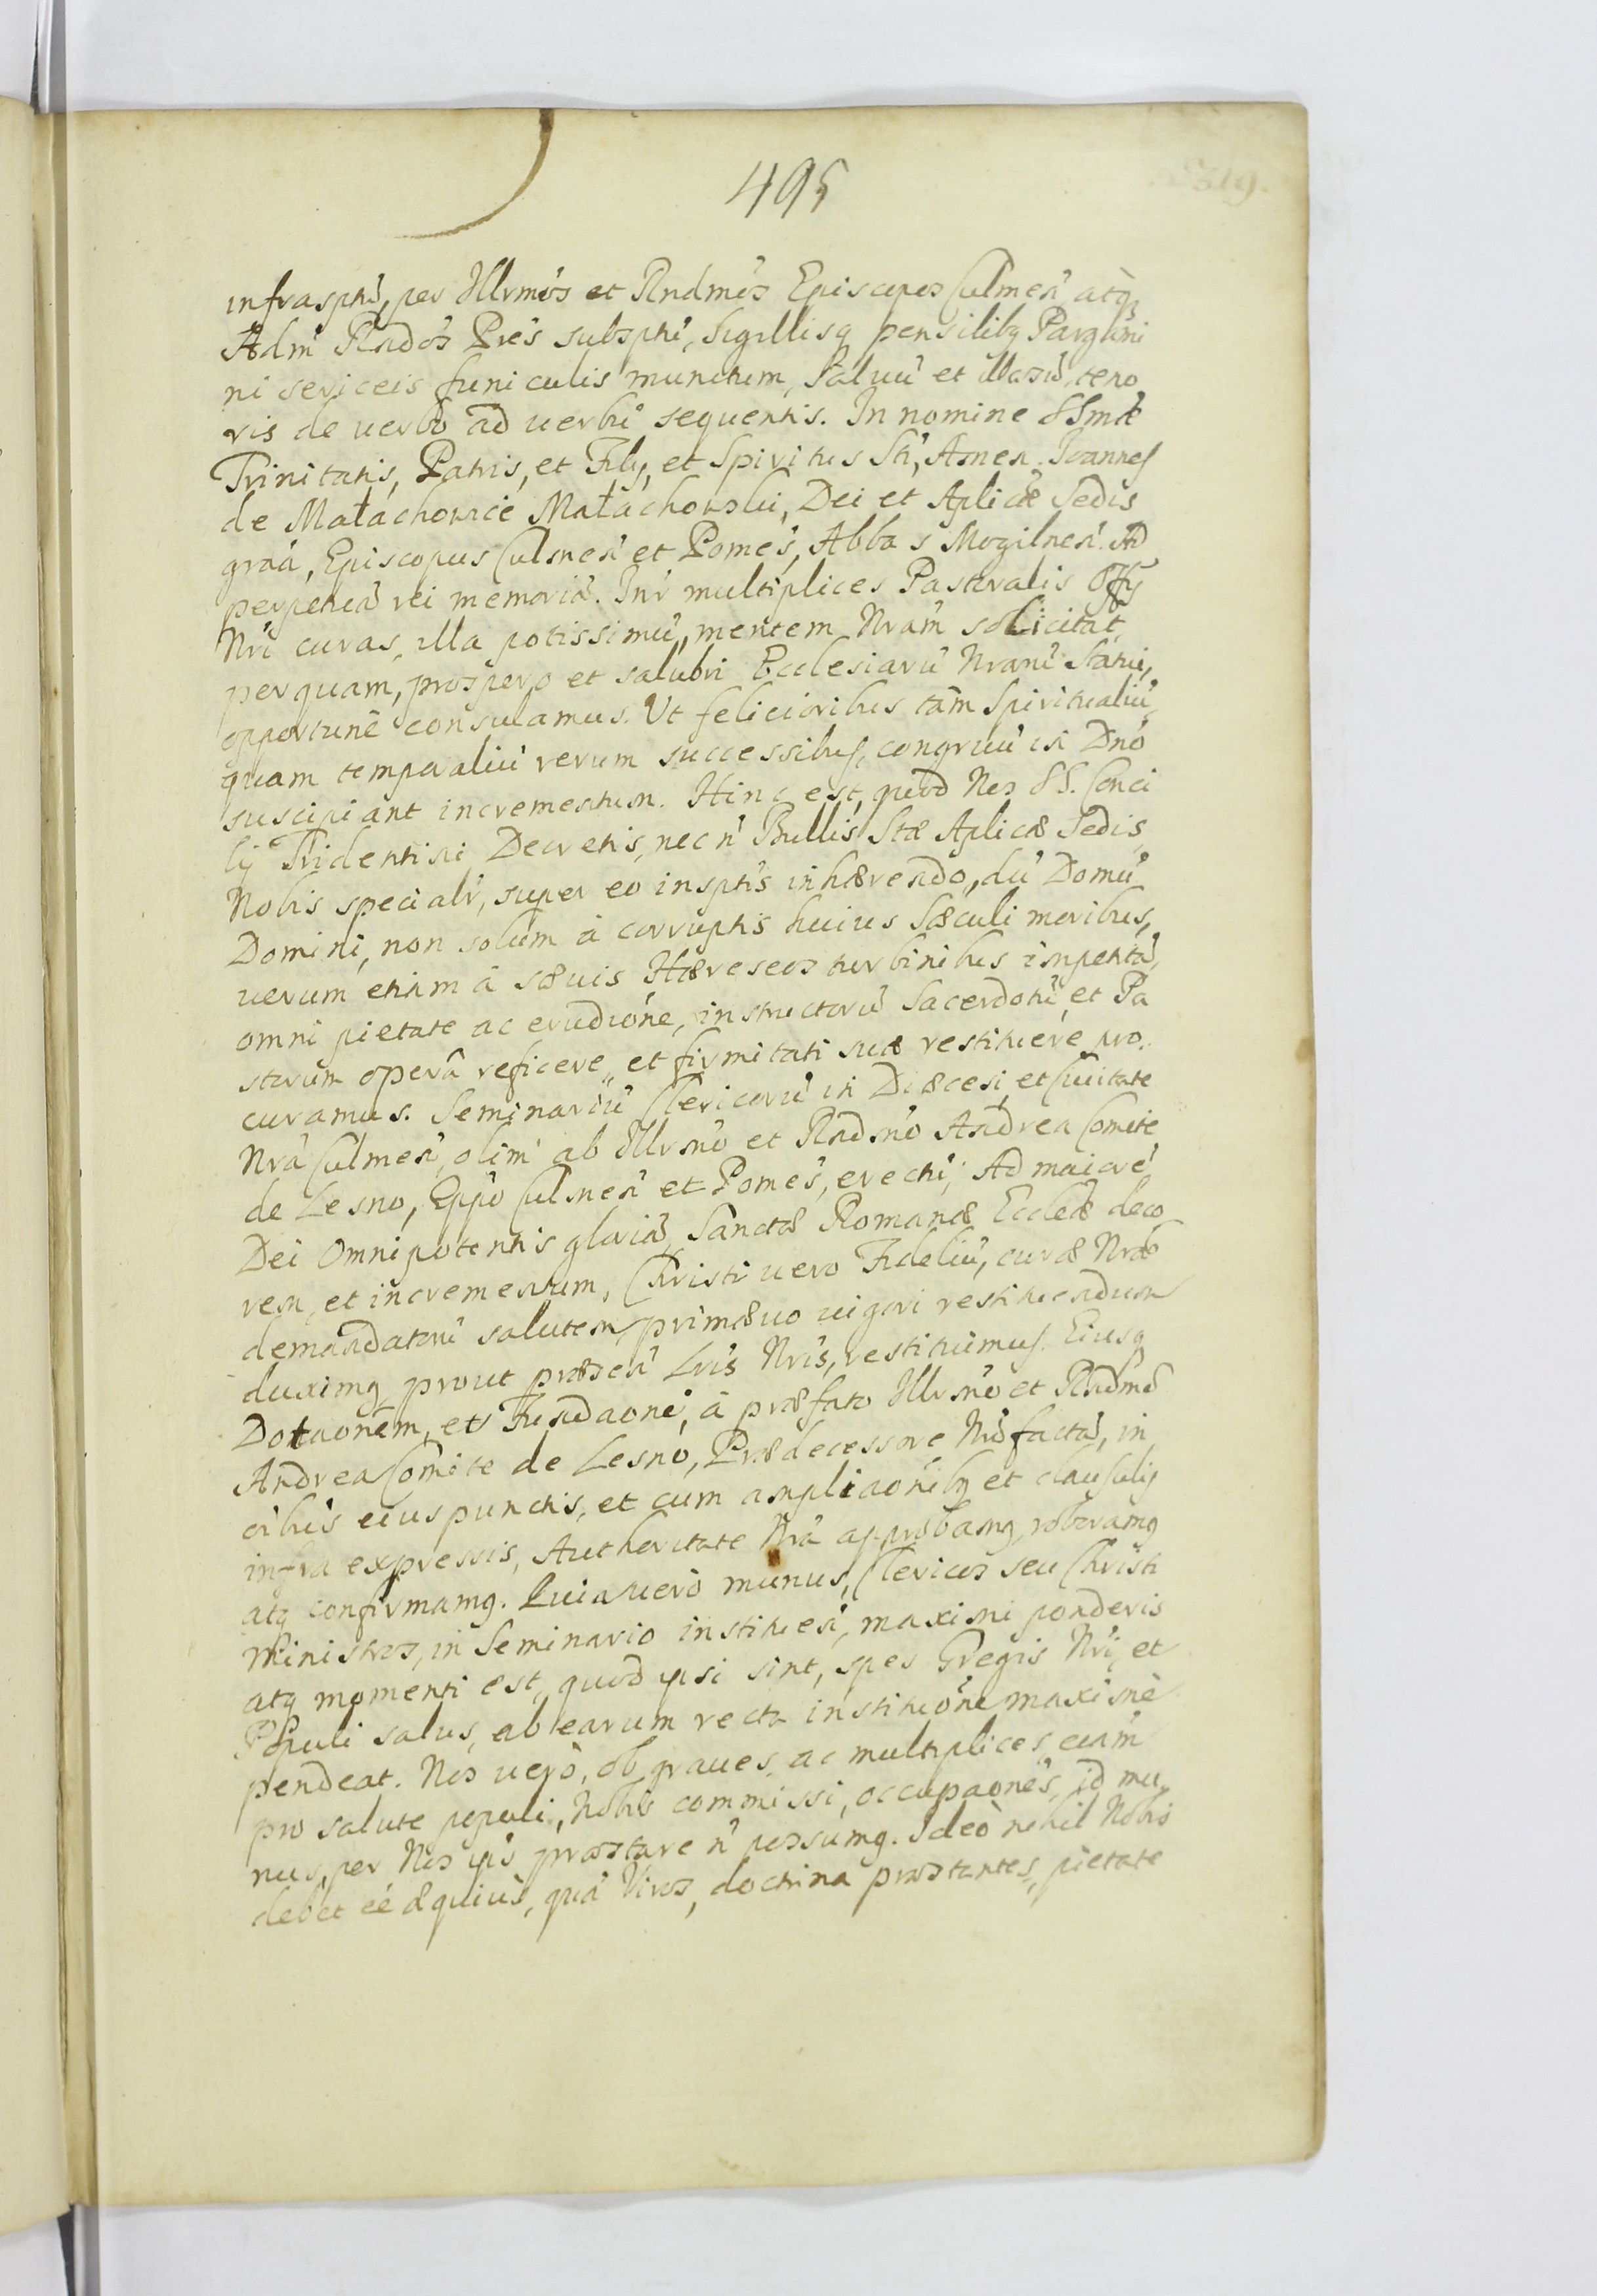 495
319.
infrasptu, per Illrmos et Rndmos Episcopos Culmen̄ atq̨
Adm̄ Rndos Pres subsptu, Sigillisq̨ pensilibq̨ Pargami
ni sericeis funiculis munitum, saluū et illaesū, teno
ris de uerbo ad uerbū sequentis. In nomine SSmæ
Trinitatis, Patris, et Filij, et Spiritus Sti, Amen. Ioannes
de Małachowice Małachowski, Dei et Aplicæ Sedis
graā, Episcopus Culmen̄ et Pomes̄, Abbas Mogilnen̄. Ad
perpetuā rei memoriā. Inr̄ multiplices Pastoralis Offij
Nri curas, illa potissimū, mentem Nram sollicitat,
per quam, prospero et salubri Ecclesiarū Nrarū Statui,
opportunè consulamus. Ut felicioribus tàm Spiritualiū,
quam temporaliū rerum successibus, congruū in Dno
suscipiant incrementum. Hinc est, quod Nos SS. Conci
lij Tridentini Decretis, nec n̄ Bullis Stæ Aplicæ Sedis,
Nobis specialr̄, super eo insptis inhærendo, dū Domū
Domini, non solùm à corruptis huius Sæculi moribus,
uerum etiam à sæuis Hæreseos turbinibus impetitā,
omni pietate ac erudione, instructorū Sacerdotū, et Pa
storum operâ reficere, et firmitati suæ restituere pro
curamus. Seminariū Clericorū in Diœcesi, et Ciuitate
Nrā Culmen̄, olim ab Illrmo et Rndmo Andrea Comite
de Lesno, Eppo Culmen̄ et Pomes̄, erectū; Ad maiorē
Dei Omnipotentis gloriā, Sanctæ Romanæ Eccleæ deco
rem, et incrementum, Christi uero Fideliū, curæ Nræ
demandatorū salutem, primæuo uigori restituendum
duximq̨ prout præsen̄ Lris Nris, restituimus. Eiusq̨
Dotaonem, et Fundaonē, à præfato Illrmo et Rndmo
Andrea Comite de Lesno, Prædecessore Nro factā, in
oibus eius punctis, et cum ampliaonibq̨ et clausulis
infra expressis, Authoritate Nrā approbamq̨, roboramq̨
atq̨ confirmamq̨. Quia uerò munus, Clericos seu Christi
Ministros, in Seminario instituen̄, maximi ponderis
atq̨ momenti est, quod ipsi sint, spes Gregis Nri, et
Populi salus, ab earum recta instituone maximè
pendeat. Nos uerò, ob graues, ac multiplices, etiam
pro salute populi, Nobis commissi, occupaones, id mu
nus, per Nos ipsos præstare n̄ possumq̨. Ideò nihil Nobis
debet eē æquiùs, quā Viros, doctrina præstantes, pietate